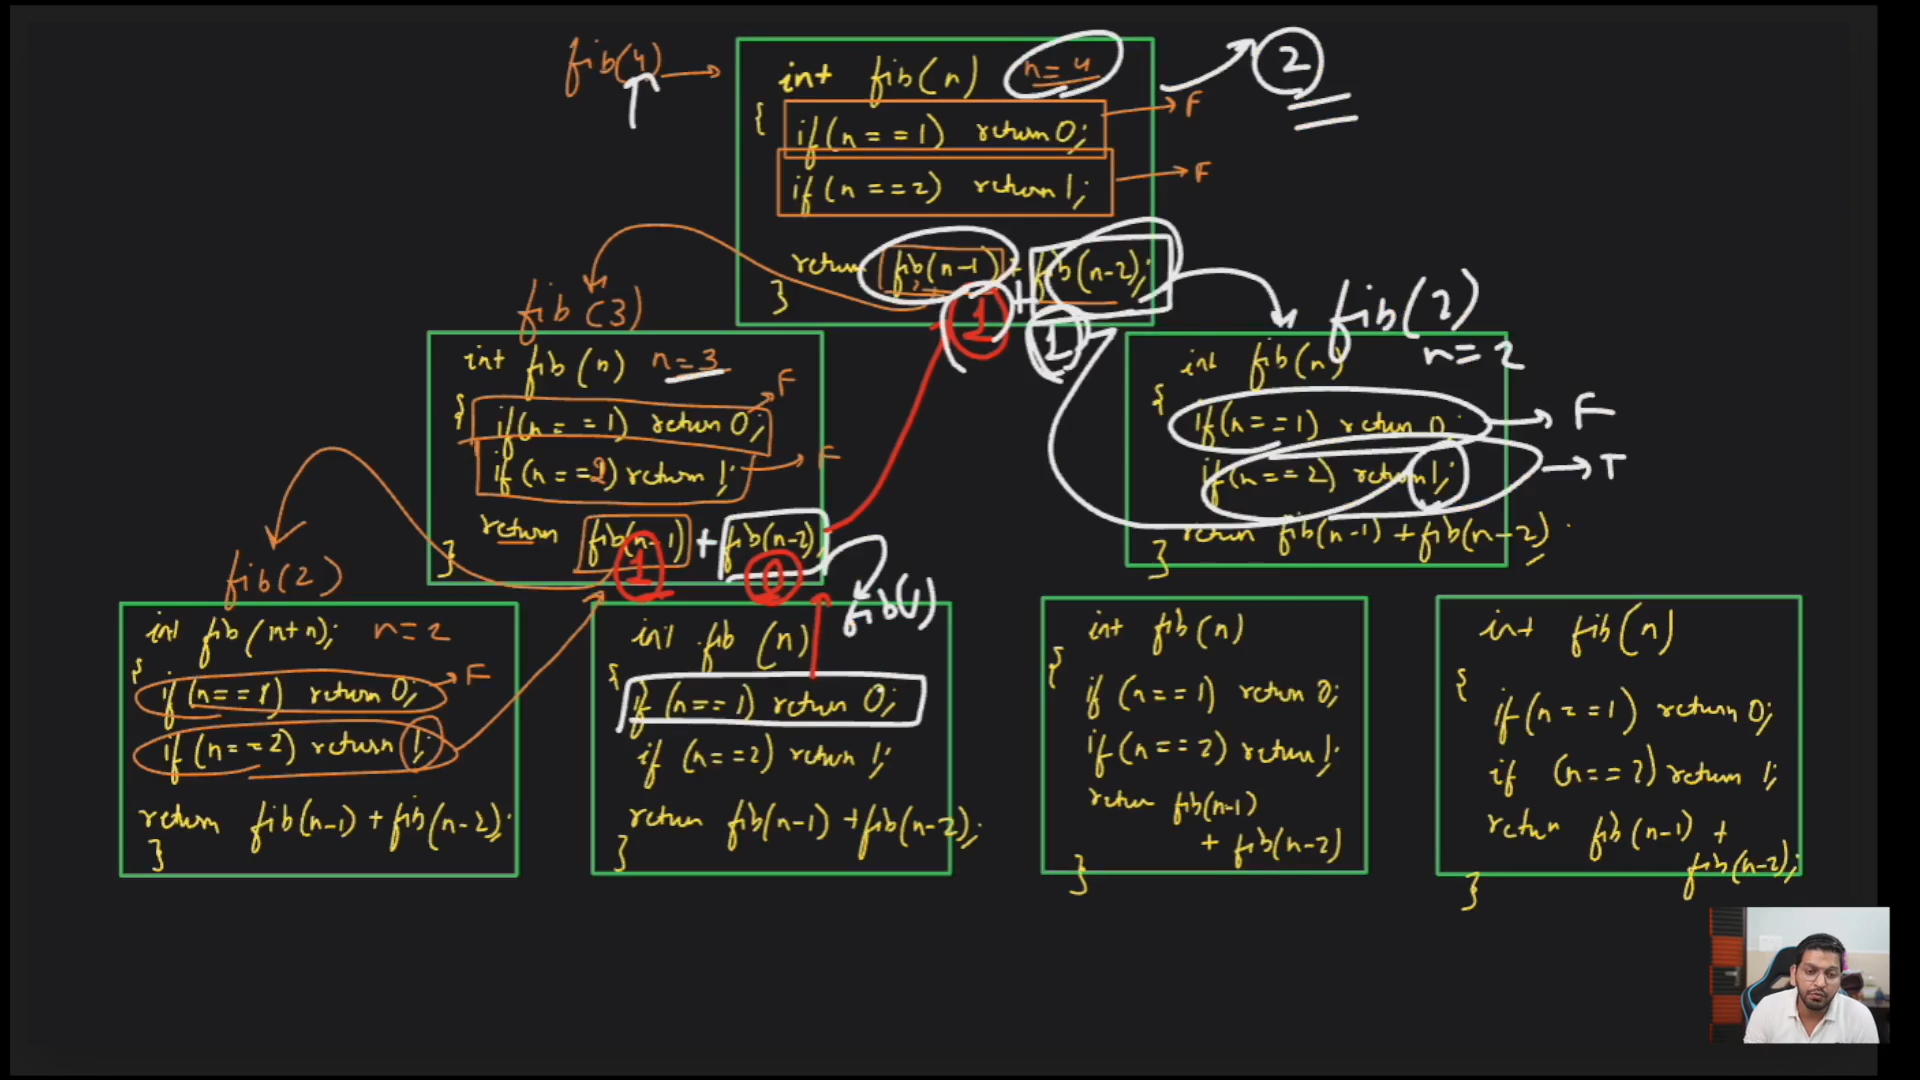 fib(4)
int fib(n) n=4
{
if(n==1) return 0; F
if(n==2) return 1; F
return fib(n-1) + fib(n-2);
}
2
1 + 1
fib(3)
int fib(n) n=3
{
if(n==1) return 0; F
if(n==2) return 1; F
return fib(n-1) + fib(n-2);
}
1 0
fib(1)
fib(2)
n=2
int fib(n)
{
if(n==1) return 0; F
if(n==2) return 1; T
return fib(n-1) + fib(n-2);
}
fib(2)
int fib(int n); n=2
{
if(n==1) return 0; F
if(n==2) return 1;
return fib(n-1) + fib(n-2);
}
int fib(n)
{
if(n==1) return 0;
if(n==2) return 1;
return fib(n-1) + fib(n-2);
}
int fib(n)
{
if(n==1) return 0;
if(n==2) return 1;
return fib(n-1)
+ fib(n-2)
}
int fib(n)
{
if(n==1) return 0;
if(n==2) return 1;
return fib(n-1) +
fib(n-2);
}